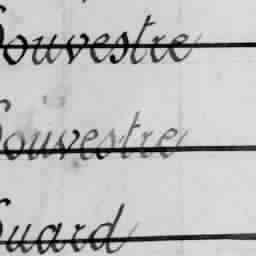 Souvestre
Souvestre
Suard